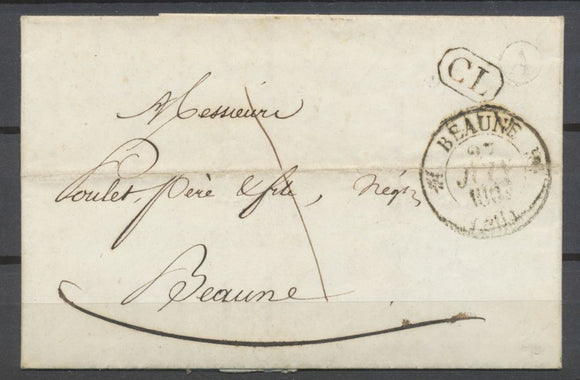 A
CL
BEAUNE
27
JUIN
(20)
Messieurs
Poulet, Père & fils, Négts
Beaune